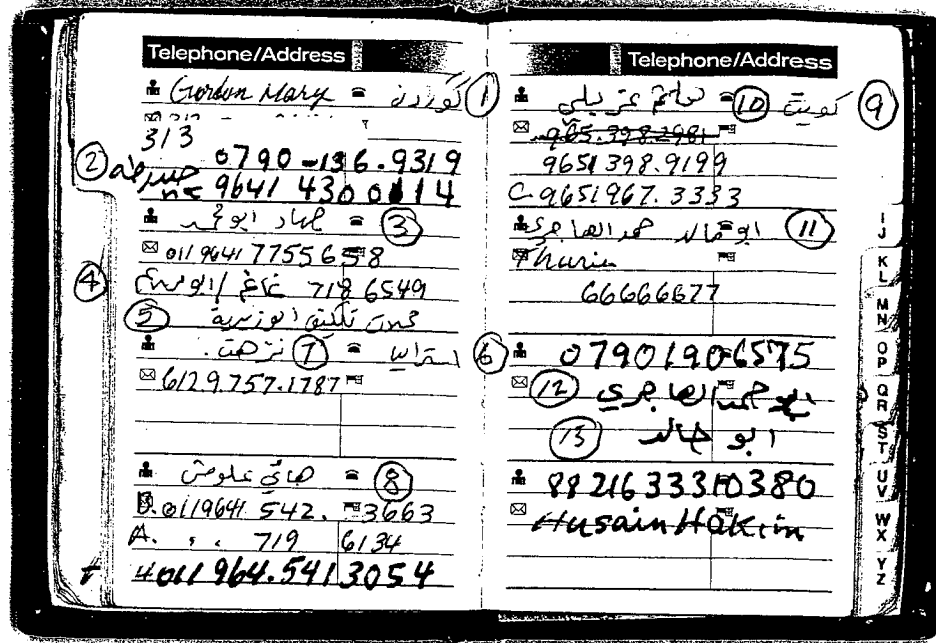 Telephone/Address
Gordon Mary ① گوردن
313
② 0790-136.9319
9641 430 0114
جهاد ابو محمد ③
011 9641 7755658
④ غانم / ابو 718 6549
⑤
⑥ استراليا ⑦ نزهت.
6129.757.1787
هاني علوش ⑧
B. 0119641 542. 3663
A. " " 719 6134
H 011 964.541 3054
Telephone/Address
⑨ كويت ⑩
965.398.2981
9651 398.9199
C-9651967.3333
ابو خالد حمد الهاجري ⑪
Thuria
66666677
07901906575
⑫ ابو حمد الهاجري
⑬ ابو خالد
88216 333 10380
Husain Hakim
I
J
K
L
M
N
O
P
Q
R
S
T
U
V
W
X
Y
Z